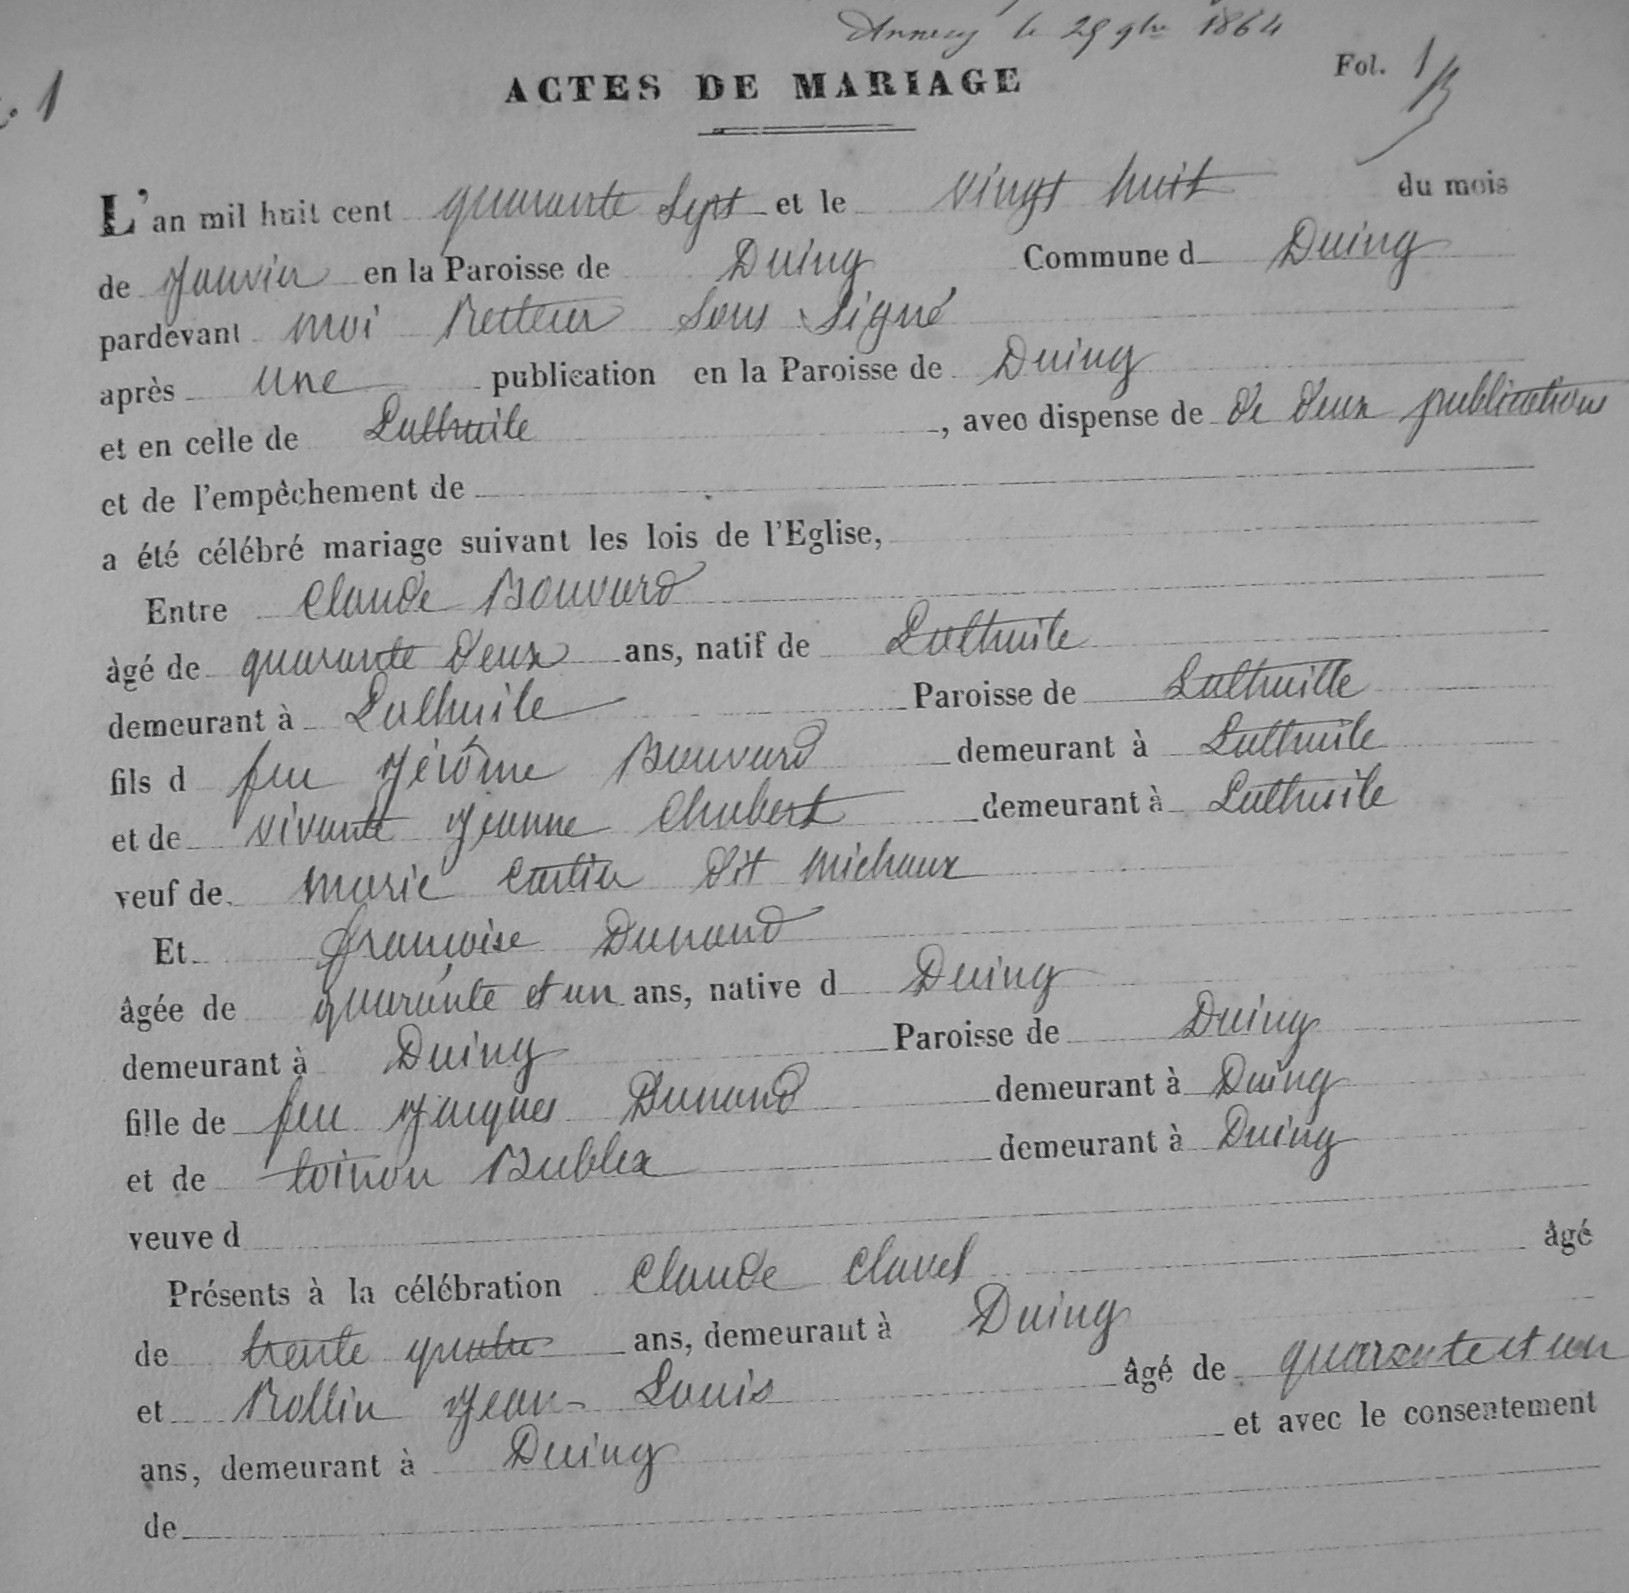 Annecy le 29 9bre 1864
. 1
ACTES DE MARIAGE
Fol. 1
L'an mil huit cent quarante Sept et le vingt huit du mois
de Janvier en la Paroisse de Duing Commune d Duing
pardevant moi Recteur Sous Signé
après une publication en la Paroisse de Duing
et en celle de Lathuile , avec dispense de de deux publications
et de l'empêchement de
a été célébré mariage suivant les lois de l'Eglise,
Entre Claude Bouvard
àgé de quarante deux ans, natif de Lathuile
demeurant à Lathuile Paroisse de Lathuille
fils d feu Jérôme Bouvard demeurant à Lathuile
et de vivante Jeanne Chabert demeurant à Lathuile
veuf de marie Cartier dit michaux
Et françoise Dunand
âgée de quarante et un ans, native d Duing
demeurant à Duing Paroisse de Duing
fille de feu Jacques Dunand demeurant à Duing
et de toinon Bublex demeurant à Duing
veuve d
Présents à la célébration Claude Clavel âgé
de trente quatre ans, demeurant à Duing
et Rollin Jean-Louis âgé de quarante et un
ans, demeurant à Duing et avec le consentement
de